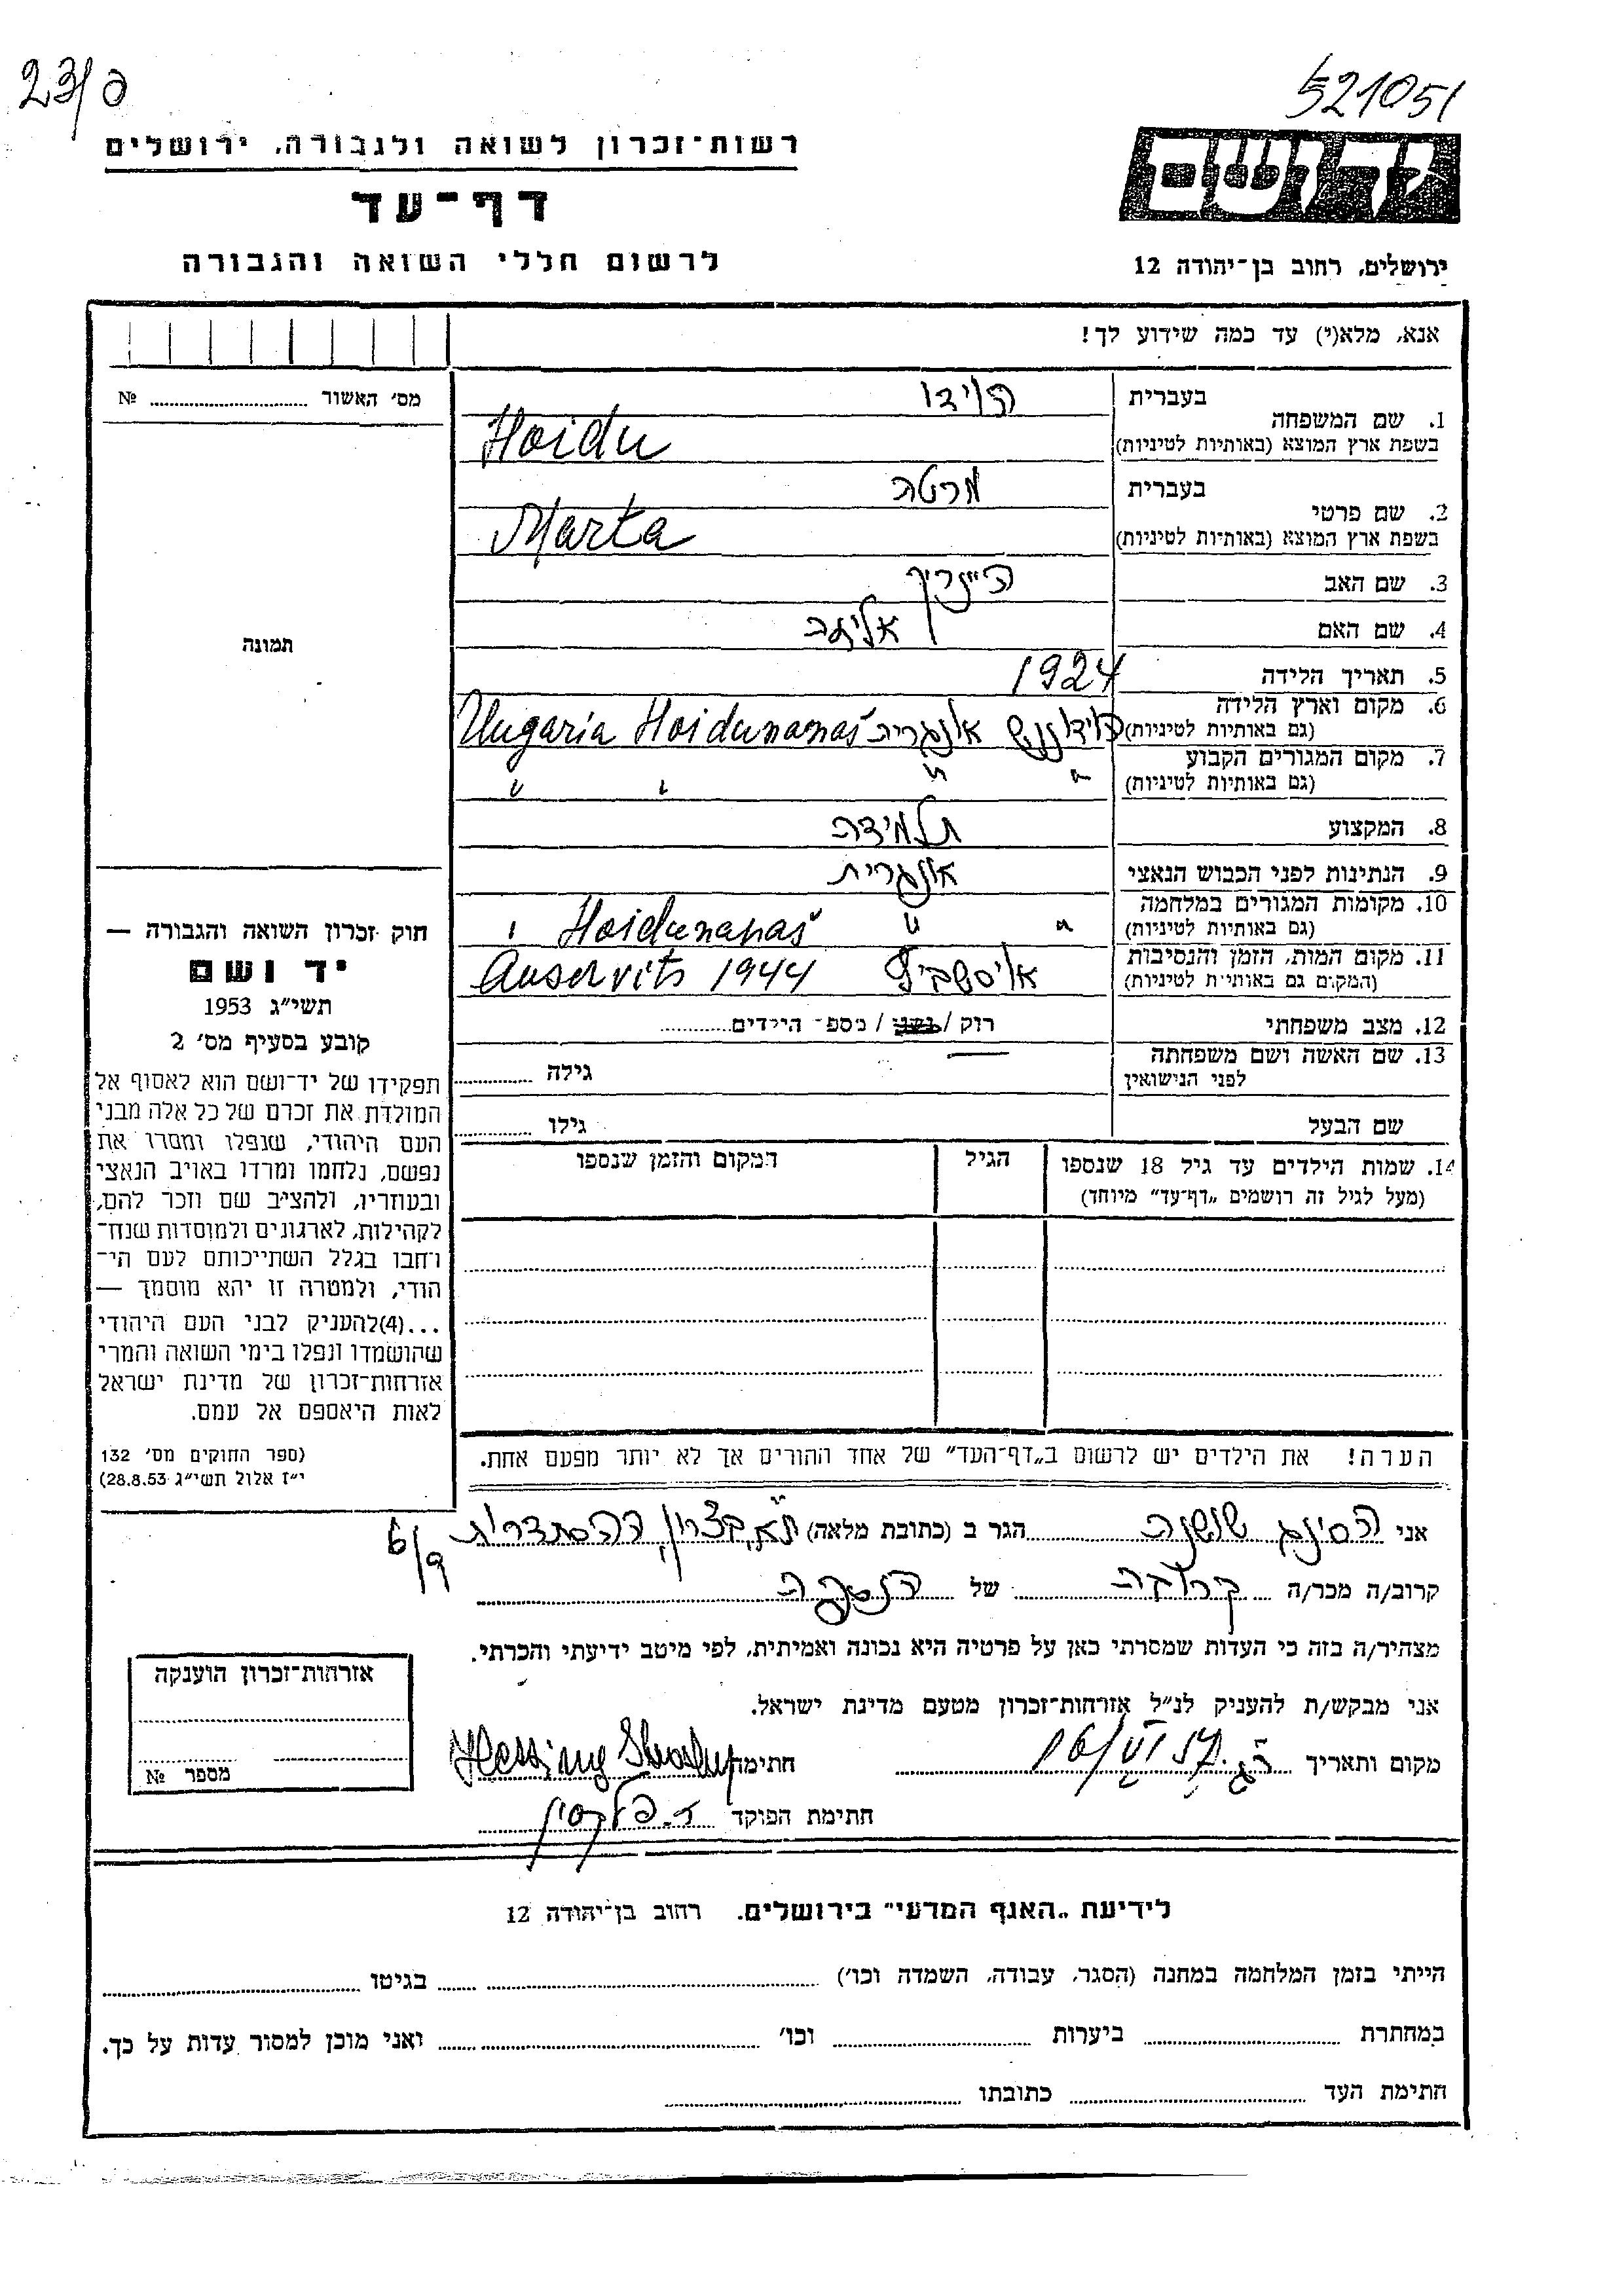 23/ס
521051
רשות־זכרון לשואה ולגבורה, ירושלים
יד ושם
דף־עד
לרשום חללי השואה והגבורה
ירושלים, רחוב בן־יהודה 12
אנא, מלא(י) עד כמה שידוע לך!
מס' האשור № ........
תמונה
1. שם המשפחה בעברית הוידו
בשפת ארץ המוצא (באותיות לטיניות) Hoidu
2. שם פרטי בעברית מרטה
בשפת ארץ המוצא (באותיות לטיניות) Marta
3. שם האב היינריך
4. שם האם
5. תאריך הלידה 1924
6. מקום וארץ הלידה
(גם באותיות לטיניות) הוידוננש אונגריה Ungaria Hoidunanaš
7. מקום המגורים הקבוע
(גם באותיות לטיניות) " " " "
8. המקצוע תלמידה
9. הנתינות לפני הכבוש הנאצי אונגרית
10. מקומות המגורים במלחמה
(גם באותיות לטיניות) " " Hoidunanaš "
11. מקום המות, הזמן והנסיבות
(המקום גם באותיות לטיניות) אוישביץ Auservits 1944
12. מצב משפחתי רווק / נשוי / מספר הילדים........
13. שם האשה ושם משפחתה
לפני הנישואין גילה ........
שם הבעל גילו ........
14. שמות הילדים עד גיל 18 שנספו
(מעל לגיל זה רושמים „דף־עד" מיוחד)
הגיל
המקום והזמן שנספו
חוק זכרון השואה והגבורה —
יד ושם
תשי"ג 1953
קובע בסעיף מס' 2
תפקידו של יד־ושם הוא לאסוף אל
המולדת את זכרם של כל אלה מבני
העם היהודי, שנפלו ומסרו את
נפשם, נלחמו ומרדו באויב הנאצי
ובעוזריו, ולהציב שם וזכר להם,
לקהילות, לארגונים ולמוסדות שנח־
רחבו בגלל השתייכותם לעם הי־
הודי, ולמטרה זו יהא מוסמך —
...(4)להעניק לבני העם היהודי
שהושמדו ונפלו בימי השואה והמרי
אזרחות־זכרון של מדינת ישראל
לאות היאספם אל עמם.
(ספר החוקים מס' 132
י"ז אלול תשי"ג 28.8.53)
הערה! את הילדים יש לרשום ב„דף־העד" של אחד ההורים אך לא יותר מפעם אחת.
אני הסינג שושנה הגר ב (כתובת מלאה) ת"א, בצרון, ההסתדרות
6/9
קרוב/ה מכר/ה קרובה של הנספה
מצהיר/ה בזה כי העדות שמסרתי כאן על פרטיה היא נכונה ואמיתית, לפי מיטב ידיעתי והכרתי.
אני מבקש/ת להעניק לנ"ל אזרחות־זכרון מטעם מדינת ישראל.
מקום ותאריך 16/VI 57 חתימה
חתימת הפוקד
אזרחות־זכרון הוענקה
מספר №
לידיעת „האגף המדעי" בירושלים. רחוב בן־יהודה 12
הייתי בזמן המלחמה במחנה (הסגר, עבודה, השמדה וכו') ........ בגיטו ........
במחתרת ........ ביערות ........ וכו' ........ ואני מוכן למסור עדות על כך.
חתימת העד ........ כתובתו ........